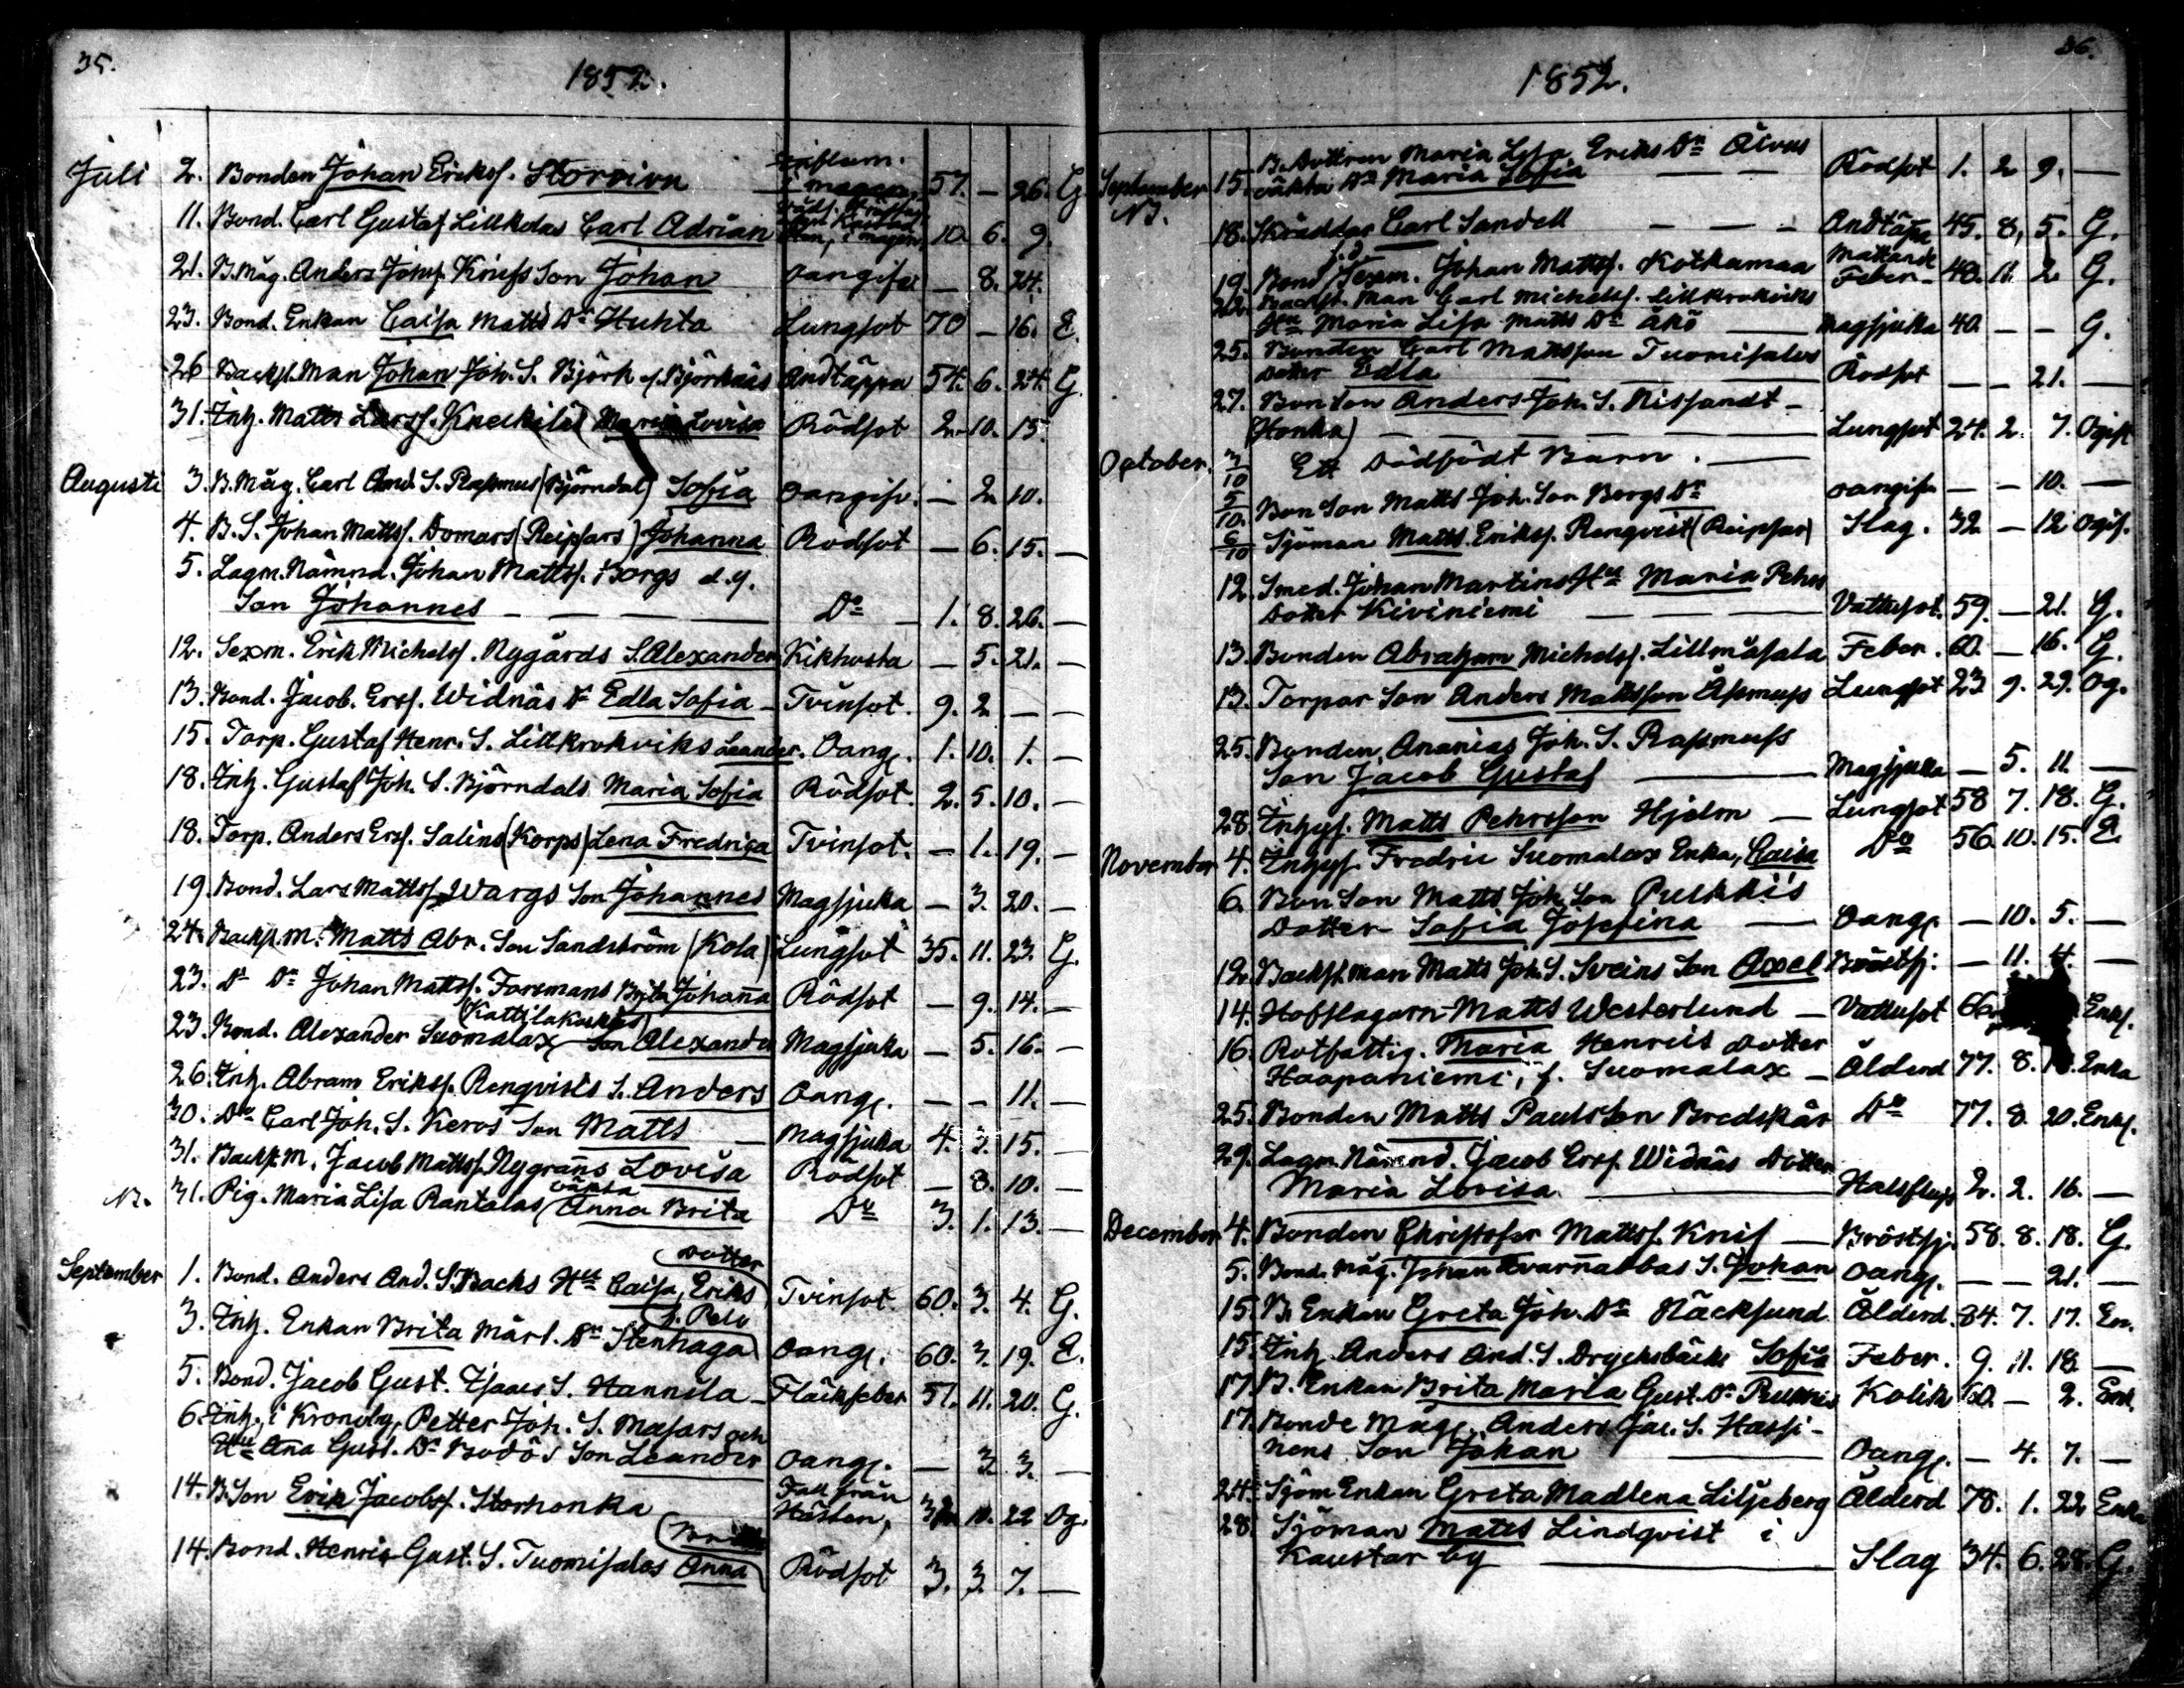 35.
1852.
Juli 2. Bonden Johan Eriksf. Storvivu Inflam. i magen 57. – 26. G
11. Bond. Carl Gustaf Lillkolas Carl Adrian 10 6. 9.
21. B. Måg. Anders Johsf. Knifs Son Johan Oangifv. – 8. 24.
23. Bond. Enkan Caisa Matts Dr Huhta Lungsot 70 – 16. E.
26 Backst. Man Johan Joh. S. Björk Björknäs Andtäppa 54. 6. 24. G
31. Inh. Matts Larsf. Maria Lovisa Rödsot 2. 10. 15.
Augusti 3. B. Måg. Carl And. S. Rasmus (Björndal) Sofia Oangifv. – 2. 10.
4. B. S. Johan Mattsf. Domars (Reipsars) Johanna Rödsot – 6. 15. –
5. Lagm. Nämnd. Johan Mattsf. Borgs d.y.
Son Johannes – – – Do – 1. 8. 26. –
12. Sexm. Erik Michelsf. Nygårds S. Alexander Kikhosta – 5. 21. –
13. Bond. Jacob. Ersf. Widnäs Dr Edla Sofia – Tvinsot. 9. 2 – –
15. Torp. Gustaf Henr. S. Lillkrokviks Leander. Oang. 1. 10. 1. –
18. Inh. Gustaf Joh. S. Björndals Maria Sofia Rödsot. 2. 5. 10. –
18. Torp. Anders Ersf. Salins (Korps) Lena Fredrica Tvinsot. – 1. 19. –
19. Bond. Lars Mattsf. Wargs Son Johannes Magsjuka – 3. 20. –
24. Backst. M. Matts Abr. Son Sandström (Kola) Lungsot 35. 11. 23. G.
23. Do Do Johan Mattsf. Foremans Brita Johanna Rödsot – 9. 14. –
(Kattilakoskis)
23. Bond. Alexander Suomalax Son Alexander Magsjuka – 5. 16. –
26. Inh. Abram Eriksf. Renqvists S. Anders Oang. – – 11. –
30. Do Carl Joh. S. Keros Son Matts – Magsjuka 4. 3. 15. –
31. Backst. M. Jacob Mattsf. Nygrans Lovisa Rödsot – 8. 10. –
N. 31. Pig. Maria Lisa Rantalas oäkta Anna Brita Do 3. 1. 13. –
Dotter
September 1. Bond. Anders And. S. Backs Hu Caisa Eriks Tvinsot. 60. 3. 4. G.
3. Inh. Enkan Brita Mårt. Dr Stenhaga Oang. 60. 3. 19. E.
5. Bond. Jacob Gust. Isaacs S. Hannila – Fläckfeber 51. 11. 20. G.
6. Inh. i Kronoby, Petter Joh. S. Masars och
Hu Ana Gust. Dr Bodös Son Leander Oang. – 3. 3. –
14. B. Son Erik Jacobsf. Storhonka Fall från Hästen, 10. 22 Og.
14. Bond. Henric Gust. S. Tuomisalos Anna Rödsot 3. 3. 7. –
36.
1852.
September 15. B. Dottren Maria Lisa Eriks Dr
N. oäkta Dr Maria Sofia – – Rödsot 1. 2 9. –
18. Skräddar Carl Sandell – – – Andtäpa 45. 8, 5. G.
19. Bond f.d. Sexm. Johan Mattsf. Kotkamaa Mattande Feber – 48. 11. 2. G.
22. Backst. Man Carl Michelsf. Lillkrokviks
Hu Maria Lisa Matts Dr Åkö – Magsjuka 40. – – G.
25. Bonden Carl Mattsson Tuomisalos
Dotter Edla – – – Rödsot – – 21. –
27. Bon Son Anders Joh. S. Nissandt –
(Honka) – – – – Lungsot 24. 2. 7. Ogift
October. 3/10 Ett dödfödt Barn. –
5/10. Bon Son Matts Joh. Son Borgs Dr oangifv – – 10. –
6/10 Sjöman Matts Eriksf. Renqvist (Reipsar) Slag. 32 – 12 Ogif.
12. Smed. Johan Martins Hu Maria Pehrs
Dotter Kiviniemi – – Vattusot. 59. – 21. G.
13. Bonden Abraham Michelsf. Lillmåsala Feber. 60. – 16. G.
13. Torpar Son Anders Mattsson Åsmuss Lungsot 23 9. 29. Og.
25. Bonden Ananias Joh. S. Rasmuss
Son Jacob Gustaf – Magsjuka – 5. 11. –
28. Inhys. Matts Pehrsson Hjelm – Lungsot 58 7. 18. G.
November 4. Inhys. Fredric Suomalax Enka, Caisa Do 56. 10. 15. E.
6. Bon Son Matts Joh. Son Pulkkis
Dotter Sofia Josefina – Oang. – 10. 5. –
12. Backst. man Matts Joh. S. Sveins Son Axel Bröstsj. – 11. 4. –
14. Hofslagarn Matts Westerlund – Vattusot Enkl.
16. Rotfattig. Maria Henrics dotter
Haapaniemi, f. Suomalax – Ålderd 77. 8. Enka
25. Bonden Matts Paulsson Bredskär Do 77. 8. 20. Enkl.
29. Lagm. Nämnd. Jacob Ersf. Widnäs Dotter
Maria Lovisa – Halsfluss 2. 2. 16. –
December 4. Bonden Christofer Mattsf. Knif – Bröstsj. 58. 8. 18. G.
5. Bond. Måg. Johan Kvarnabbas S. Johan Oang. – – 21. –
15. B. Enkan Greta Joh. Dr Näcksund. Ålderd. 84. 7. 17. En.
15. Inh. Anders And. S. Drycksbäcks Sofia Feber. 9. 11. 18 –
17. B. Enkan Brita Maria Gust. Dr Pulkkis Kolik 60. – 2. Enk.
17. Bonde Måg. Anders Jac. S. Hassi-
nens Son Johan – Oang. – 4. 7. –
24. Sjöm Enkan Greta Madlena Liljeberg Ålderd 78. 1. 22 Enka
28. Sjöman Matts Lindqvist i
Kaustar by – Slag 34. 6. 28. G.